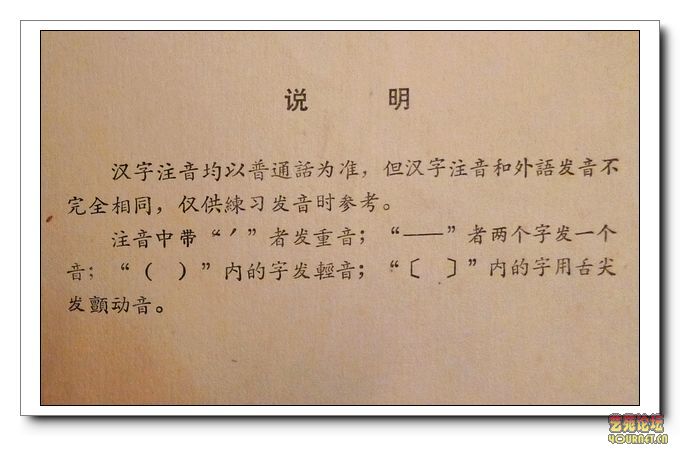 说 明
汉字注音均以普通話为准，但汉字注音和外語发音不
完全相同，仅供練习发音时参考。
注音中带“ˊ”者发重音；“——”者两个字发一个
音；“（ ）”内的字发輕音；“〔 〕”内的字用舌尖
发顫动音。
艺苑论坛
4YOURNET.CN